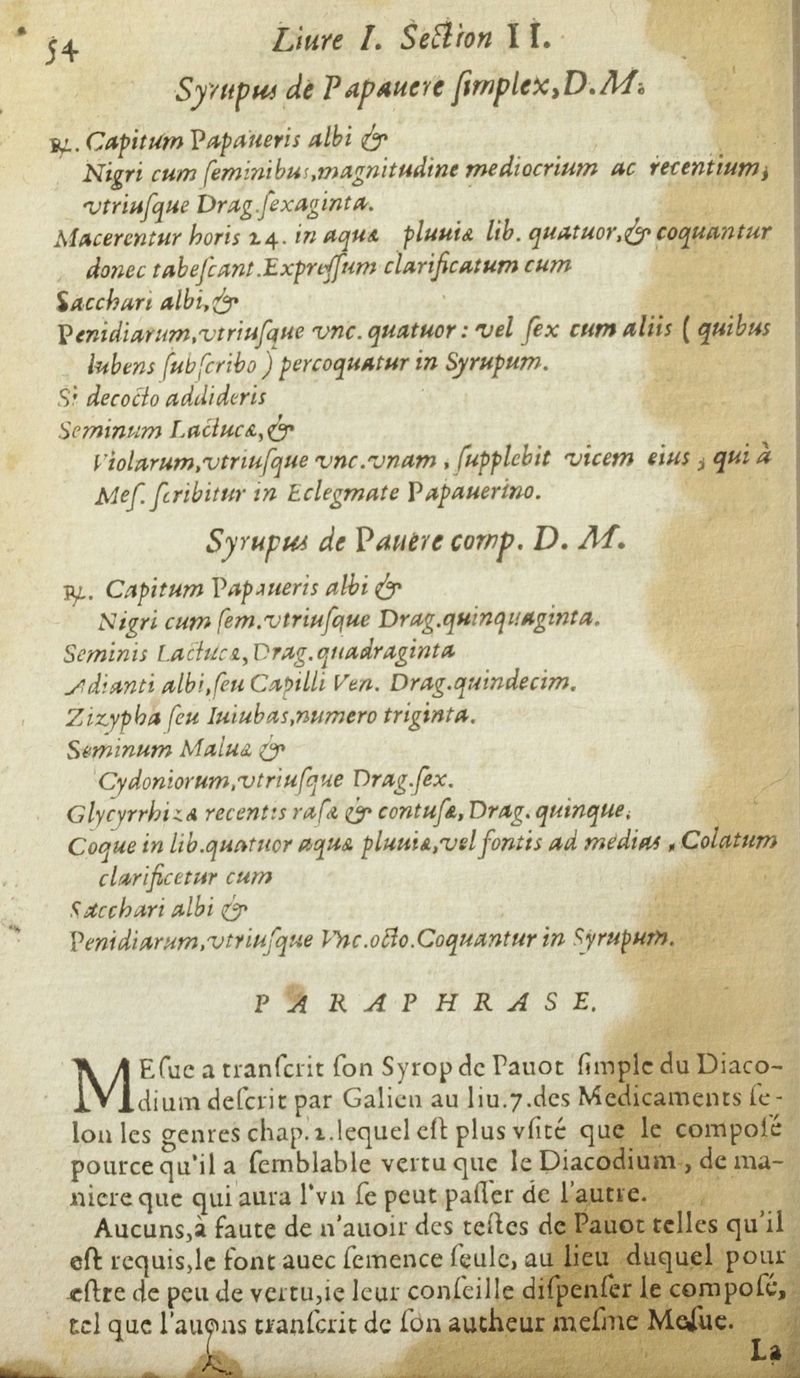 54 Liure I. Section II.
Syrupus de Papauere ſimplex, D. M.
℞. Capitum Papaueris albi &
Nigri cum ſeminibus, magnitudine mediocrium ac recentium,
vtriuſque Drag. ſexaginta.
Macerentur horis 24. in aquæ pluuiæ lib. quatuor, & coquantur
donec tabeſcant. Expreſſum clarificatum cum
Sacchari albi, &
Penidiarum, vtriuſque vnc. quatuor : vel ſex cum aliis ( quibus
lubens ſubſcribo ) percoquatur in Syrupum.
Si decocto addideris
Seminum Lactucæ, &
Violarum, vtriuſque vnc. vnam , ſupplebit vicem eius , qui à
Meſ. ſcribitur in Eclegmate Papauerino.
Syrupus de Pauere comp. D. M.
℞. Capitum Papaueris albi &
Nigri cum ſem. vtriuſque Drag. quinquaginta.
Seminis Lactucæ, Drag. quadraginta
Adianti albi, ſeu Capilli Ven. Drag. quindecim.
Zizypha ſeu Iuiubas, numero triginta.
Seminum Maluæ &
Cydoniorum, vtriuſque Drag. ſex.
Glycyrrhizæ recentis raſæ & contuſæ, Drag. quinque.
Coque in lib. quatuor aquæ pluuiæ, vel fontis ad medias , Colatum
clarificetur cum
Sacchari albi &
Penidiarum, vtriuſque Vnc. octo. Coquantur in Syrupum.
PARAPHRASE.
MEſue a tranſcrit ſon Syrop de Pauot ſimple du Diaco-
dium deſcrit par Galien au liu. 7. des Medicaments ſe-
lon les genres chap. 2. lequel eſt plus vſité que le compoſé
pource qu'il a ſemblable vertu que le Diacodium , de ma-
niere que qui aura l'vn ſe peut paſſer de l'autre.
Aucuns, à faute de n'auoir des teſtes de Pauot telles qu'il
eſt requis, le font auec ſemence ſeule, au lieu duquel pour
eſtre de peu de vertu, ie leur conſeille diſpenſer le compoſé,
tel que l'auons tranſcrit de ſon autheur meſme Meſue.
La